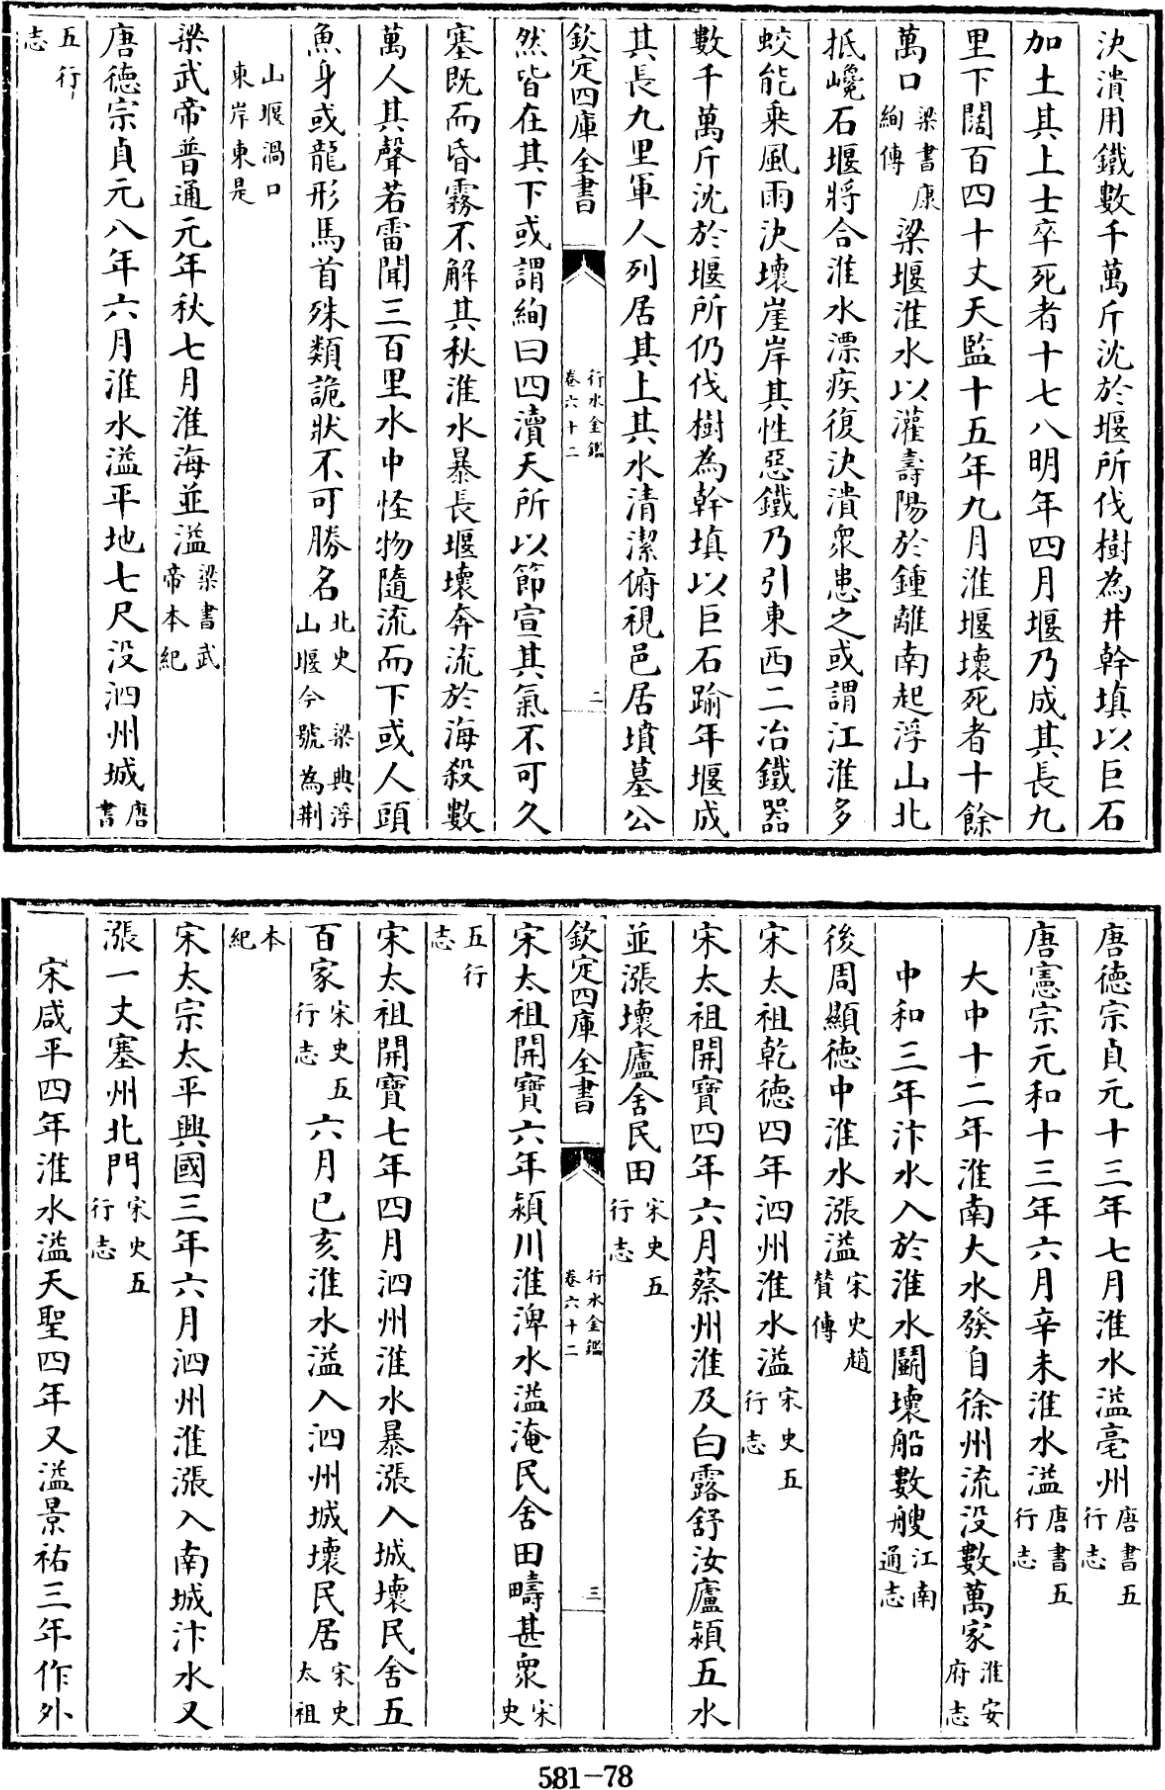 決潰用鐵數千萬斤沈於堰所伐樹為井幹填以巨石
加土其上士卒死者十七八明年四月堰乃成其長九
里下闊百四十丈天監十五年九月淮堰壞死者十餘
萬口梁書康絢傳梁堰淮水以灌壽陽於鍾離南起浮山北
抵巉石堰將合淮水漂疾復決潰衆患之或謂江淮多
蛟能乘風雨決壞崖岸其性惡鐵乃引東西二冶鐵器
數千萬斤沈於堰所仍伐樹為幹填以巨石踰年堰成
其長九里軍人列居其上其水清潔俯視邑居墳墓公
欽定四庫全書 行水金鑑卷六十二 二
然皆在其下或謂絢曰四瀆天所以節宣其氣不可久
塞既而昏霧不解其秋淮水暴長堰壞奔流於海殺數
萬人其聲若雷聞三百里水中怪物隨流而下或人頭
魚身或龍形馬首殊類詭狀不可勝名北史 梁典浮山堰今號為荆
山堰渦口東岸東是
梁武帝普通元年秋七月淮海並溢梁書武帝本紀
唐德宗貞元八年六月淮水溢平地七尺没泗州城唐書
五行志
唐德宗貞元十三年七月淮水溢亳州唐書五行志
唐憲宗元和十三年六月辛未淮水溢唐書五行志
大中十二年淮南大水發自徐州流没數萬家淮安府志
中和三年汴水入於淮水鬬壞船數艘江南通志
後周顯德中淮水漲溢宋史趙贊傳
宋太祖乾德四年泗州淮水溢宋史五行志
宋太祖開寶四年六月蔡州淮及白露舒汝廬潁五水
並漲壞廬舍民田宋史五行志
欽定四庫全書 行水金鑑卷六十二 三
宋太祖開寶六年潁川淮渒水溢淹民舍田疇甚衆宋史
五行志
宋太祖開寶七年四月泗州淮水暴漲入城壞民舍五
百家宋史五行志六月已亥淮水溢入泗州城壞民居宋史太祖
本紀
宋太宗太平興國三年六月泗州淮漲入南城汴水又
漲一丈塞州北門宋史五行志
宋咸平四年淮水溢天聖四年又溢景祐三年作外
581-78